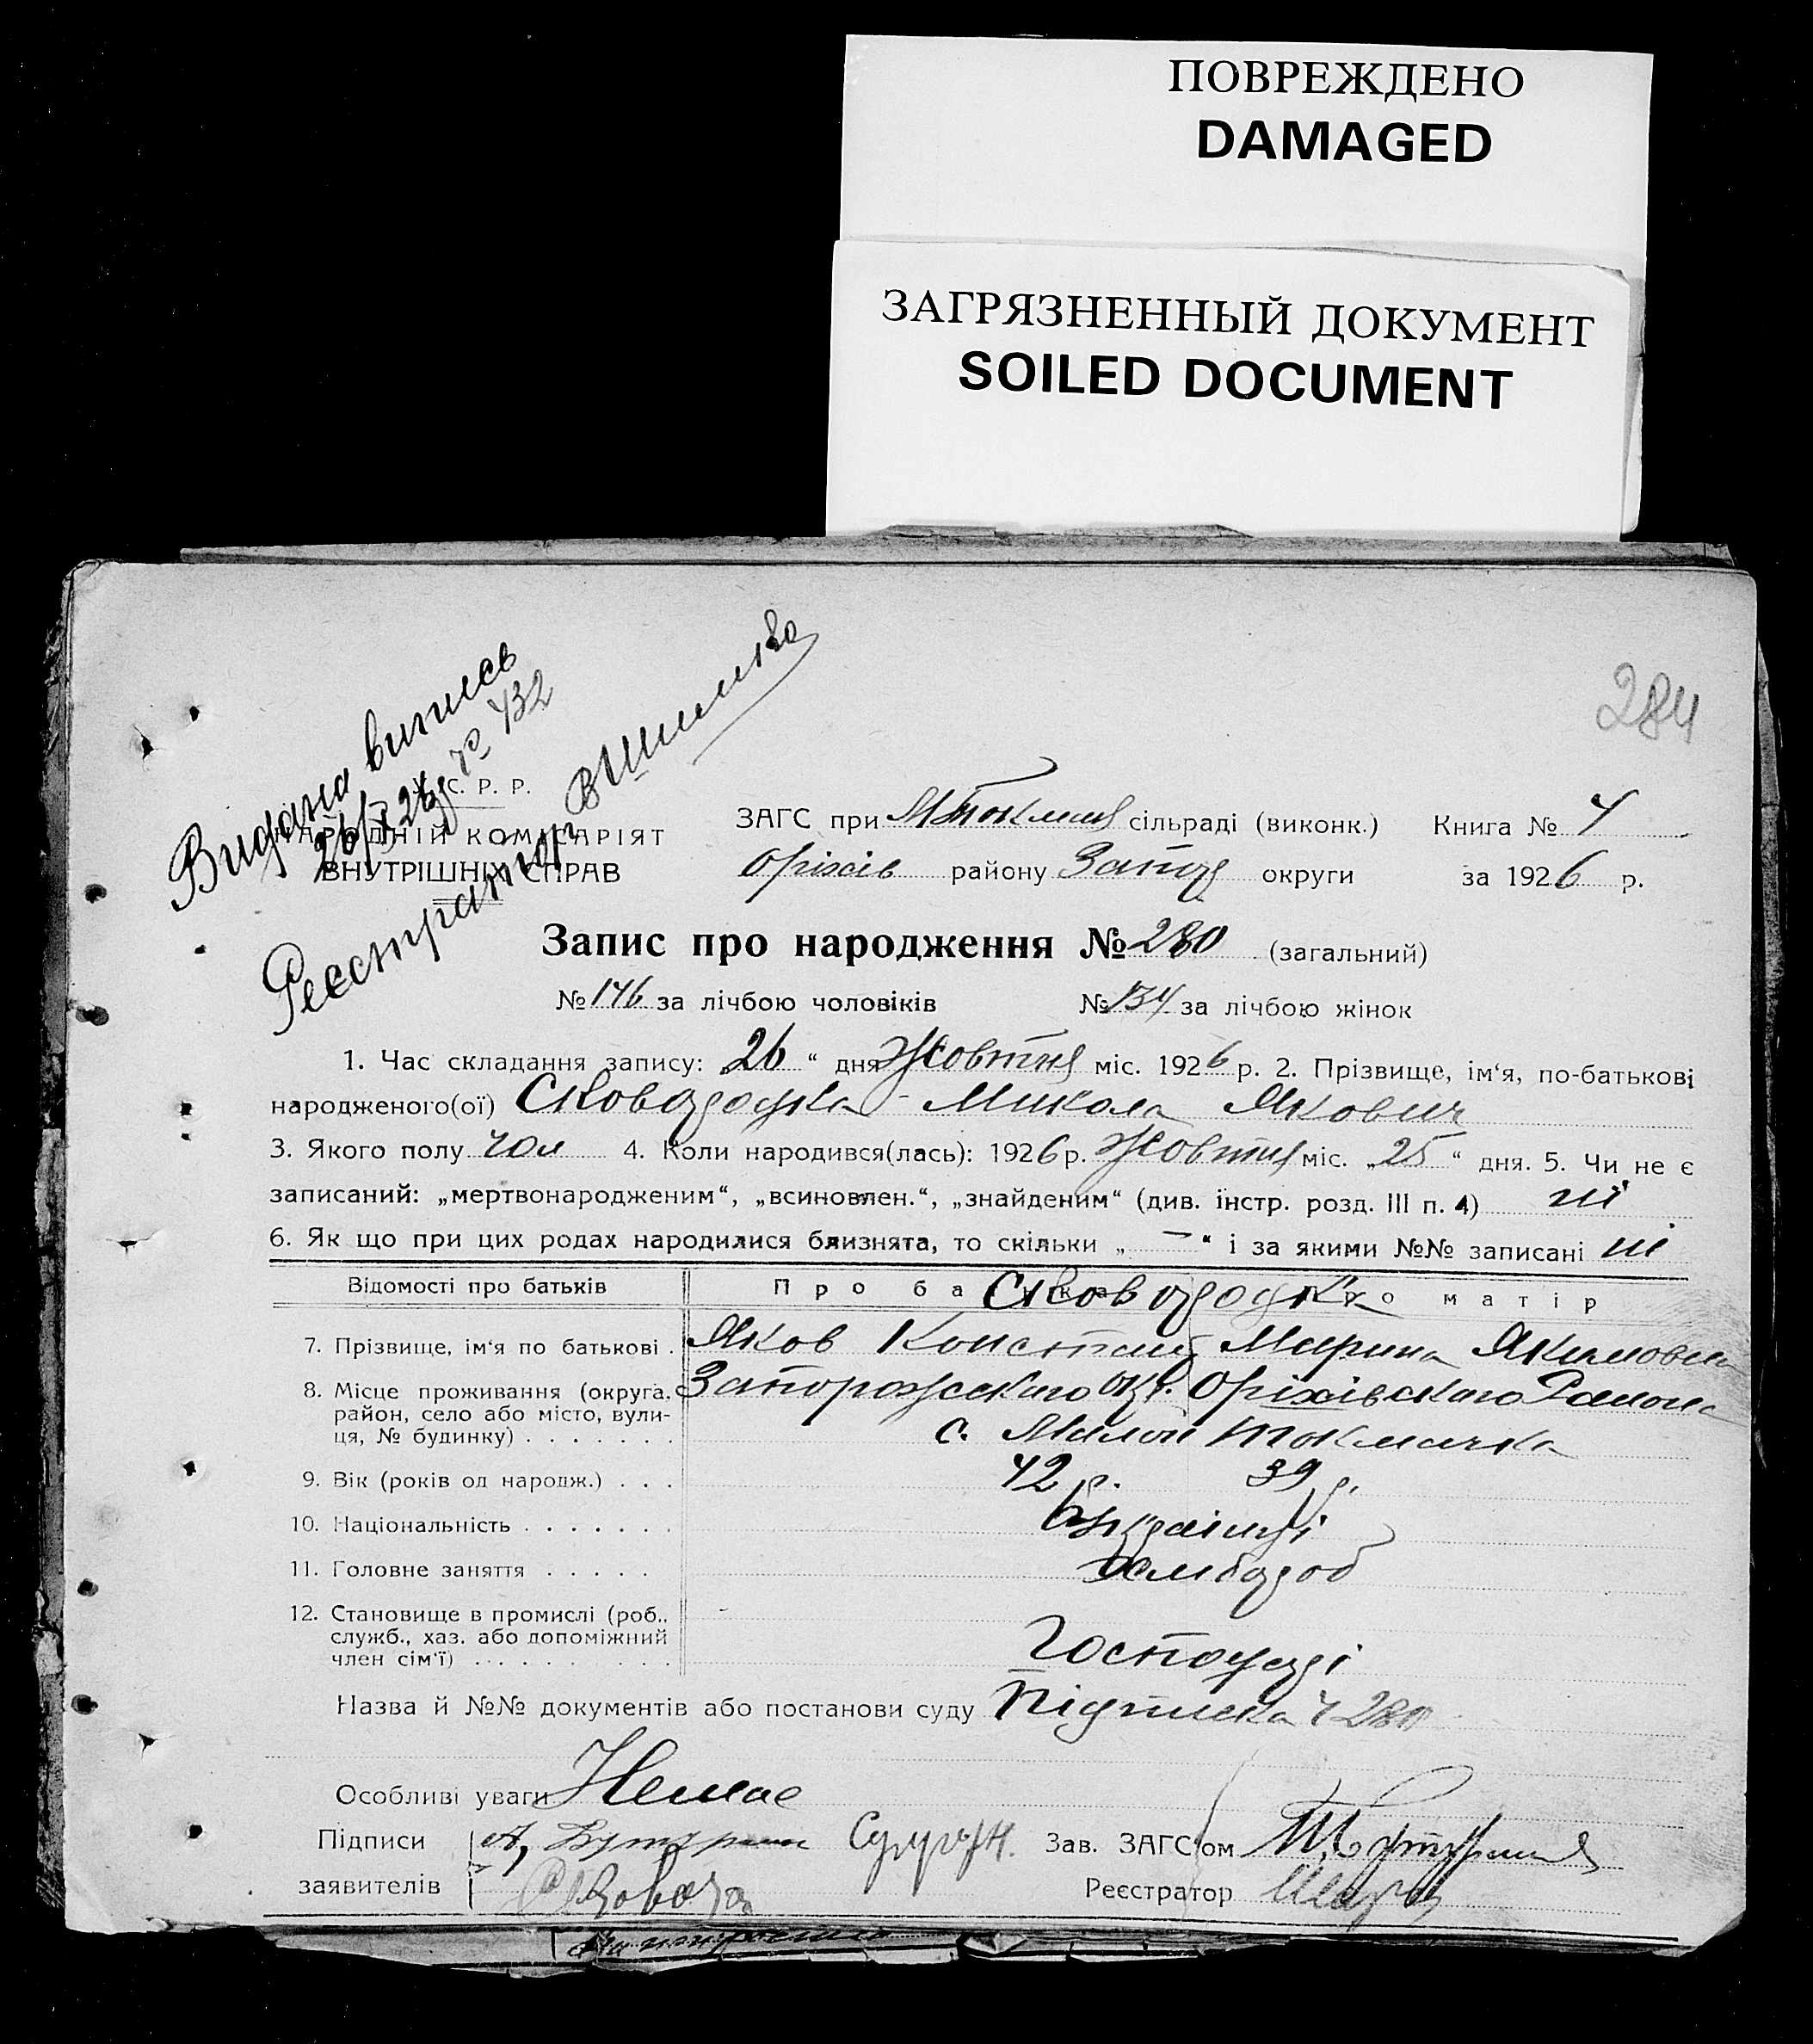 ПОВРЕЖДЕНО
DAMAGED
ЗАГРЯЗНЕННЫЙ ДОКУМЕНТ
SOILED DOCUMENT
284
Видана випись
26/X 26 р № 432
Реєстратор
С. Р. Р.
НАРОДНІЙ КОМІСАРІЯТ
ВНУТРІШНІХ СПРАВ
ЗАГС при МТокмац сільраді (виконк.) Книга № 4
Оріхів району Запор округи за 1926 р.
Запис про народження № 280 (загальний)
№ 146 за лічбою чоловіків № 134 за лічбою жінок
1. Час складання запису: „26“ дня Жовтня міс. 1926 р. 2. Прізвище, ім‘я, по-батькові
народженого(ої) Сковородка Микола Якович
3. Якого полу чол 4. Коли народився(лась): 1926 р. Жовтня міс. „25“ дня. 5. Чи не є
записаний: „мертвонародженим“, „всиновлен.“, „знайденим“ (див. інстр. розд. III п. 4) ні
6. Як що при цих родах народилися близнята, то скільки „—“ і за якими №№ записані ні
Відомості про батьків Про батька Про матір
Сковородка
7. Прізвище, ім‘я по батькові . Яков Констант Марина Якимовна
8. Місце проживання (округа, Запорожского окр. Оріхівского Района
район, село або місто, вули-
ця, № будинку) . . . . . . . с. Малой Токмачка
9. Вік (років од народж.) . . . 42 р. 39 р.
10. Національність . . . . . . . Українці
11. Головне заняття . . . . . Хлибороб
12. Становище в промислі (роб.,
служб., хаз. або допоміжний
член сім‘ї) . . . . . . . . . Господарі
Назва й №№ документів або постанови суду Підписка 280
Особливі уваги Немае
Підписи Зав. ЗАГС‘ом
заявителів Сковорода Реєстратор